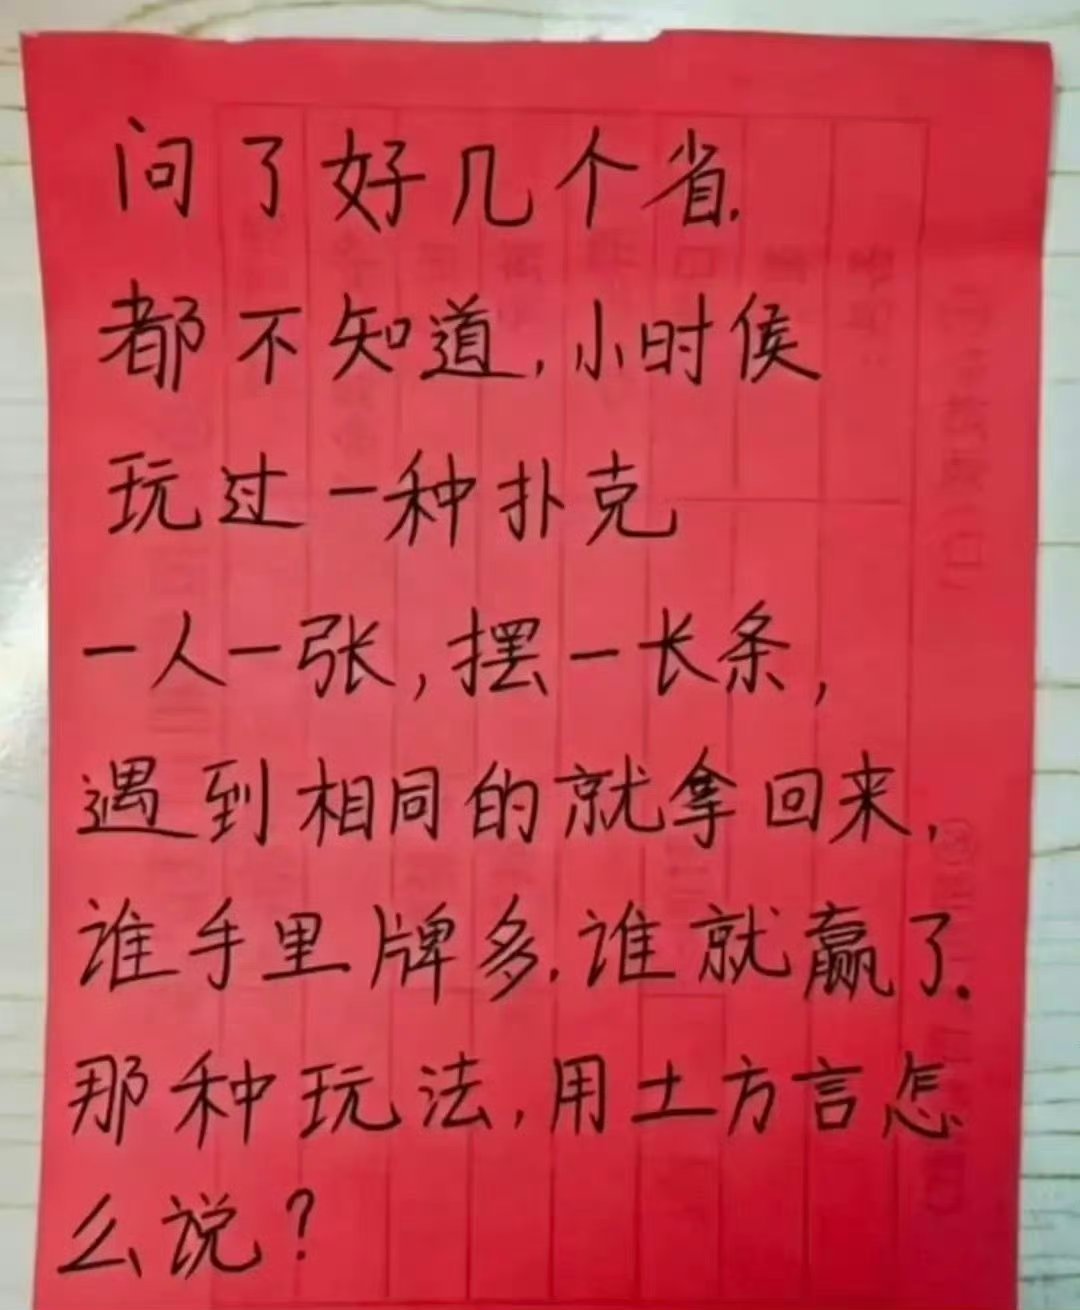 问了好几个省.
都不知道,小时侯
玩过一种扑克
一人一张,摆一长条,
遇到相同的就拿回来,
谁手里牌多.谁就赢了.
那种玩法,用土方言怎
么说?